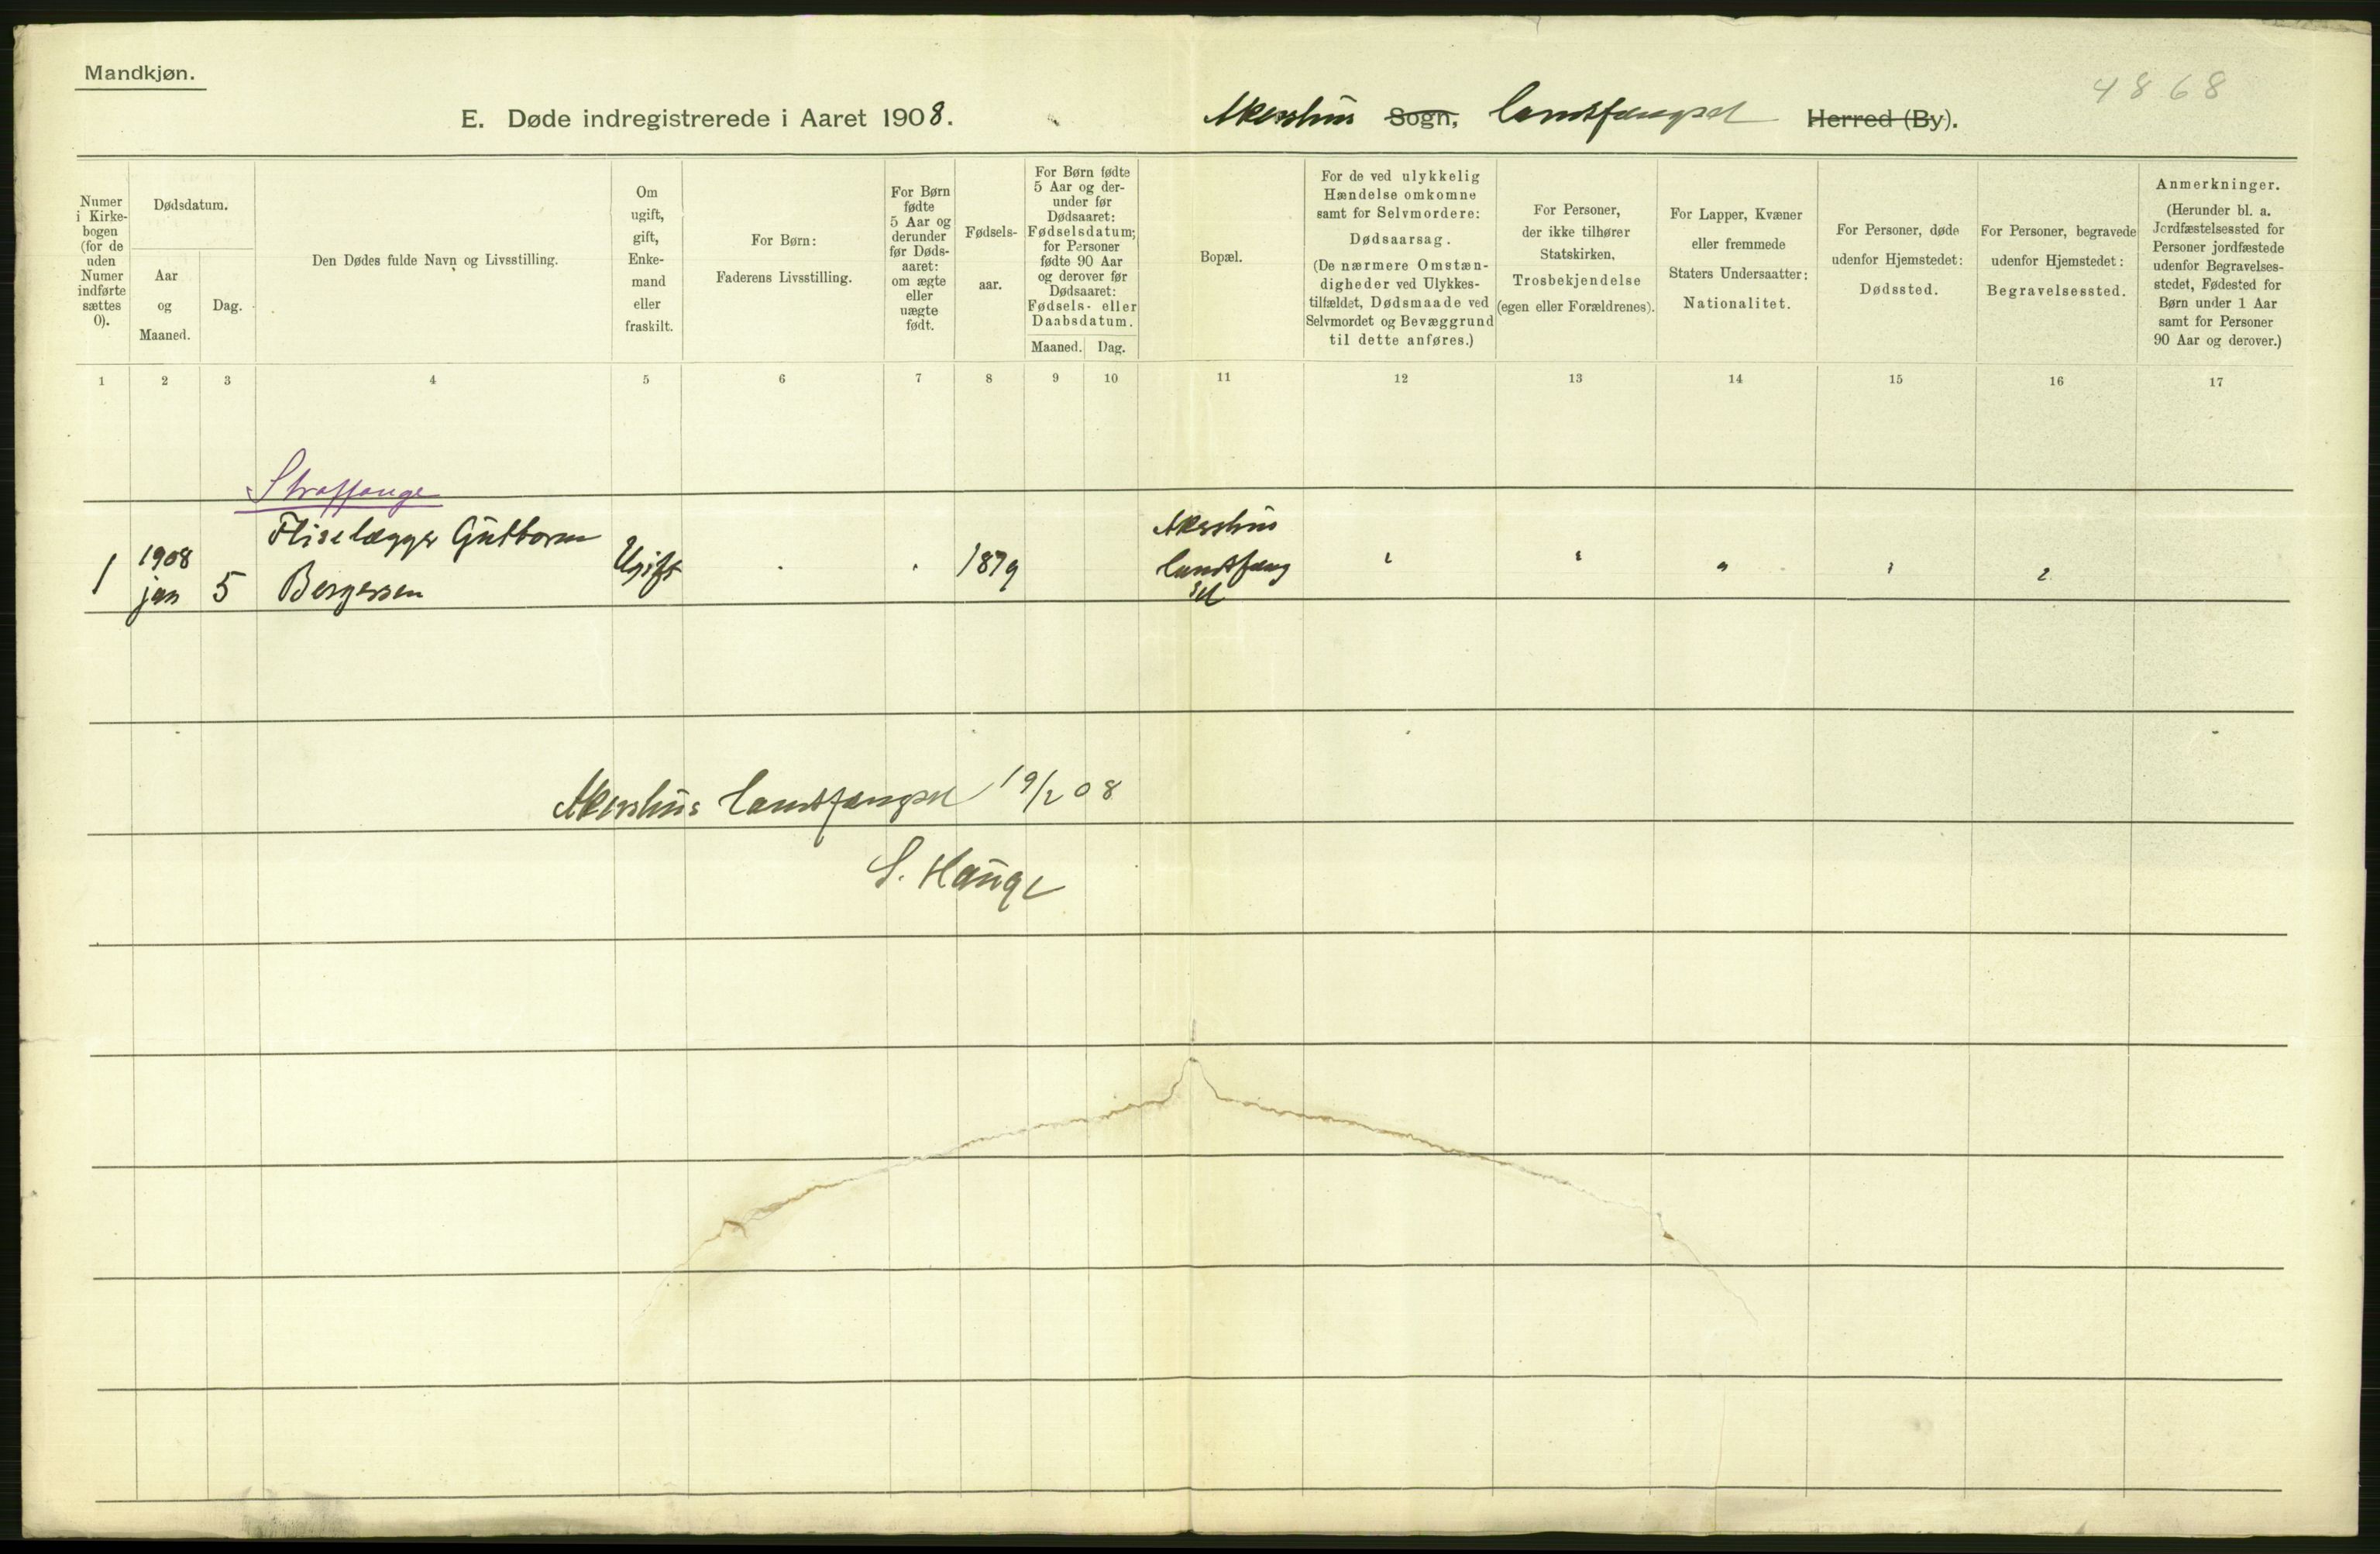 Mandkjøn.
4868
E. Døde indregistrerede i Aaret 1908. Akershus Sogn, landsfængsel Herred (By).
Numer i Kirkebogen (for de uden Numer indførte sættes 0).
Dødsdatum.
Aar og Maaned.
Dag.
Den Dødes fulde Navn og Livsstilling.
Om ugift, gift, Enkemand eller fraskilt.
For Børn: Faderens Livsstilling.
For Børn fødte 5 Aar og derunder før Dødsaaret: om ægte eller uægte født.
Fødselsaar.
For Børn fødte 5 Aar og derunder før Dødsaaret: Fødselsdatum; for Personer fødte 90 Aar og derover før Dødsaaret: Fødsels- eller Daabsdatum.
Maaned. Dag.
Bopæl.
For de ved ulykkelig Hændelse omkomne samt for Selvmordere: Dødsaarsag. (De nærmere Omstændigheder ved Ulykkestilfældet, Dødsmaade ved Selvmordet og Bevæggrund til dette anføres.)
For Personer, der ikke tilhører Statskirken, Trosbekjendelse (egen eller Forældrenes).
For Lapper, Kvæner eller fremmede Staters Undersaatter: Nationalitet.
For Personer, døde udenfor Hjemstedet: Dødssted.
For Personer, begravede udenfor Hjemstedet: Begravelsessted.
Anmerkninger. (Herunder bl. a. Jordfæstelsessted for Personer jordfæstede udenfor Begravelsesstedet, Fødested for Børn under 1 Aar samt for Personer 90 Aar og derover.)
1 2 3 4 5 6 7 8 9 10 11 12 13 14 15 16 17
Straffange
1 1908 jan 5 Fliselægger Guttorm Bergersen Ugift 1879 Akershus landsfængsel
Akershus landsfængsel 19/2 08
S. Hauge